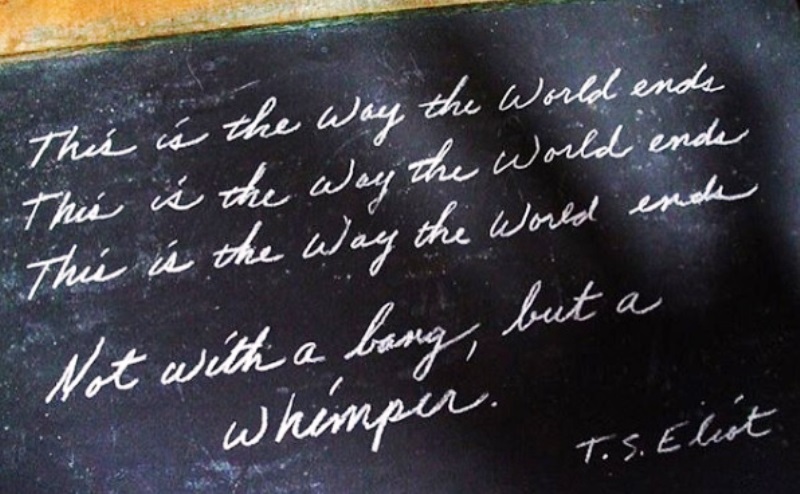 This is the Way the World ends
This is the Way the World ends
This is the Way the World ends
Not with a bang, but a
Whimper.
T. S. Eliot